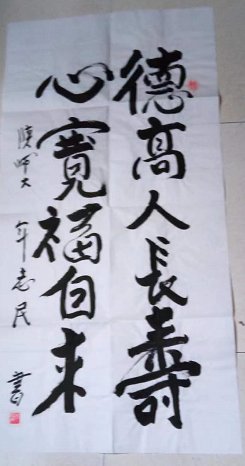 德高人長壽
心寬福自来
陕师大 年志民 書